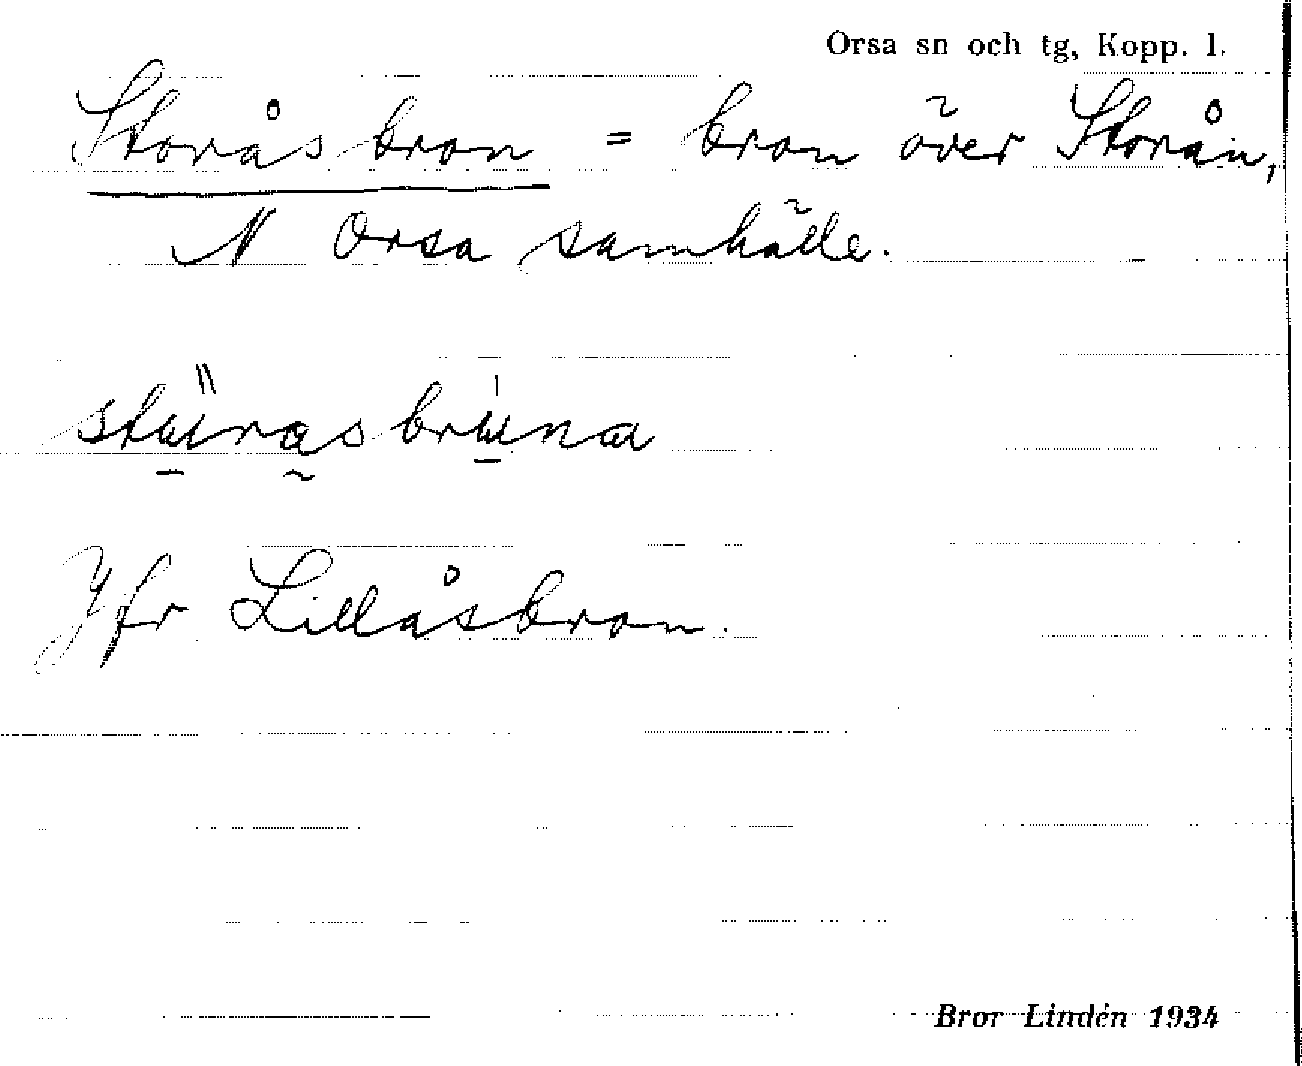 Orsa sn och tg, Kopp. l.
Storåsbron = bron över Storån,
N Orsa samhälle.
Jfr Lillåsbron.
Bror Lindén 1934